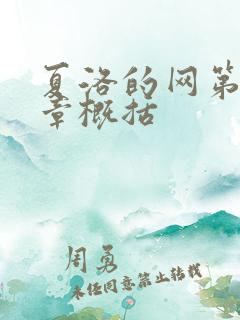 夏洛的网第
章概括
周勇
未经同意禁止转载